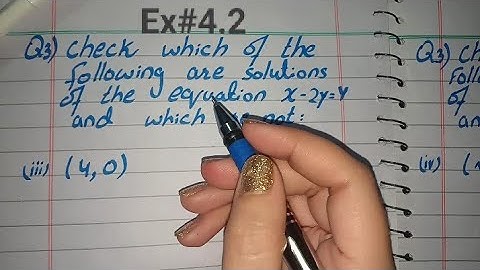 Ex#4.2
Q3) Check which of the
following are solutions
of the equation x-2y=4
and which not:
(iii) (4,0)
Q3)
(iv)